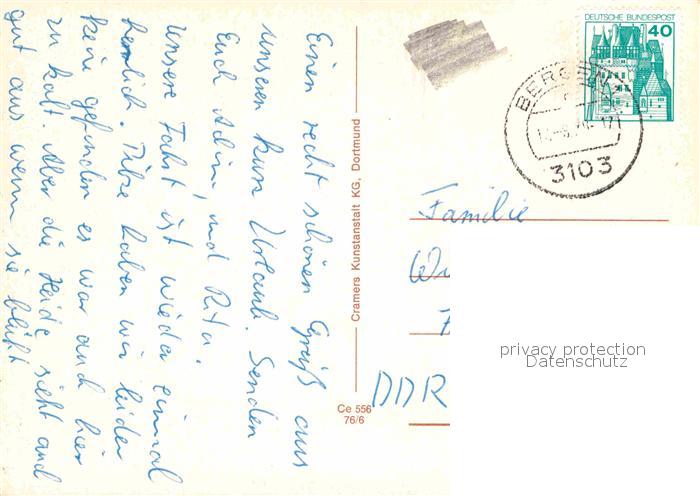 Einen recht schönen Gruß aus
unseren kurz Urlaub. Senden
Euch Achim, und Rita.
Unsere Fahrt ist wieder einmal
herrlich. Pilze haben wir leider
keine gefunden es war auch hier
zu kalt. Aber die Heide sieht auch
gut aus wenn sie blüht
Cramers Kunstanstalt KG, Dortmund
Ce 556
76/6
DEUTSCHE BUNDESPOST
40
BERGEN
3103
Familie
DDR
privacy protection
Datenschutz